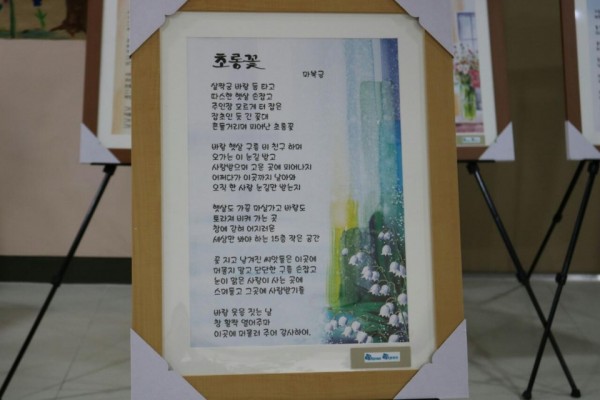 초롱꽃
마복궁
살랑궁 바람 등 타고
따스한 햇살 손잡고
주인장 모르게 터 잡은
잡초인 듯 긴 꽃대
흔들거리며 피어난 초롱꽃
바람 햇살 구름 비 친구 하며
오가는 이 눈길 받고
사랑받으며 고운 곳에 피어나지
어쩌다가 이곳까지 날아와
오직 한 사람 눈길만 받는지
햇살도 가끔 마실가고 바람도
토라져 비켜 가는 곳
창에 갇혀 어지러운
세상만 봐야 하는 15층 작은 공간
꽃 지고 남겨진 씨앗들은 이곳에
머물지 말고 단단한 구름 손잡고
눈이 맑은 사람이 사는 곳에
스며들고 그곳에 사랑받기를
바람 웃음 짓는 날
창 활짝 열어주마
이곳에 머물러 주어 감사하여.